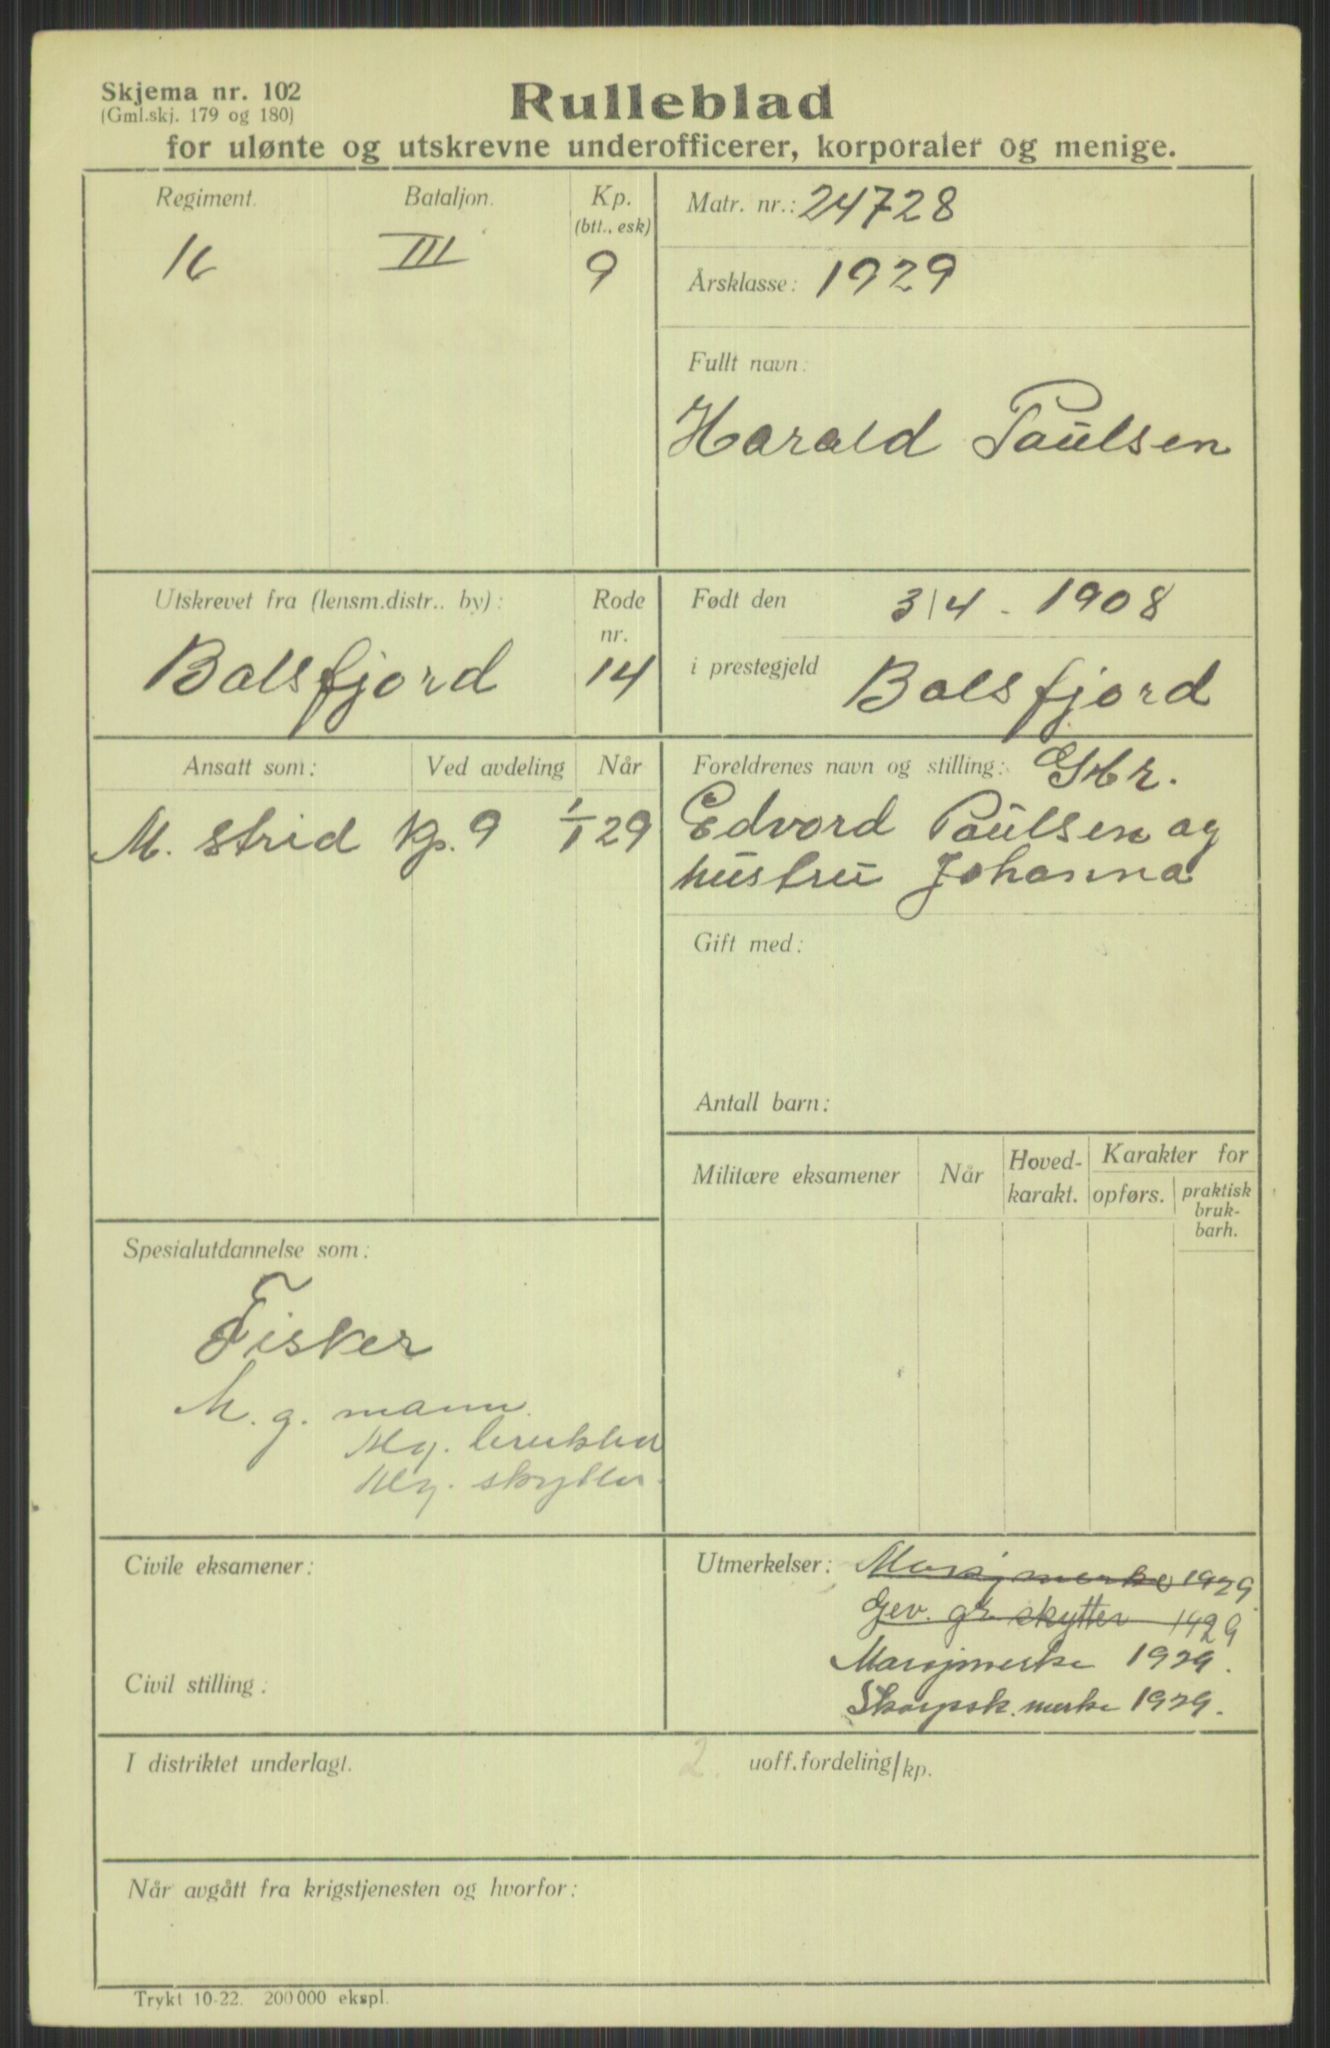 Skjema nr. 102
(Gml.skj. 179 og 180)
Rulleblad
for ulønte og utskrevne underofficerer, korporaler og menige.
Regiment.
16
Bataljon.
III
Kp.
(btt., esk)
9
Matr. nr.: 24728
Årsklasse: 1929
Fullt navn:
Harald Paulsen
Utskrevet fra (lensm.distr.. by):
Balsfjord
Rode
nr.
14
Født den 3/4 - 1908
i prestegjeld Balsfjord
Ansatt som: Ved avdeling Når
M. strid Kp. 9 1/1 29
Foreldrenes navn og stilling: Gbr.
Edvard Paulsen og
hustru Johanna
Gift med:
Antall barn:
Militære eksamener
Når
Hoved-
karakt.
Karakter for
opførs.
praktisk
bruk-
barh.
Spesialutdannelse som:
Fisker
M. g. mann.
Mg. brukbar
Mg. skytter.
Civile eksamener:
Civil stilling:
Utmerkelser: Marsjmerke 1929
Gev. gr. skytter 1929
Marsjmerke 1929.
Skarpsk. merke 1929.
I distriktet underlagt.
2. uoff.fordeling/kp.
Når avgått fra krigstjenesten og hvorfor:
Trykt 10-22. 200000 ekspl.